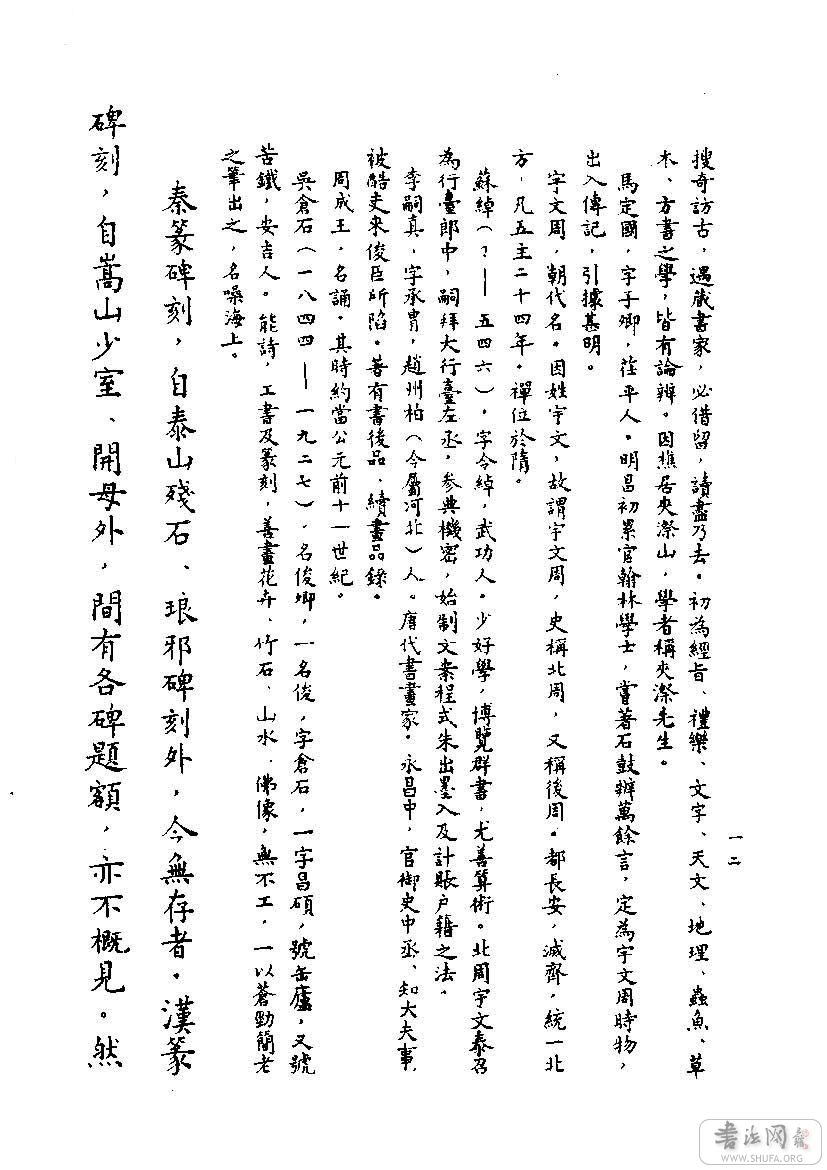 搜奇訪古，遇藏書家，必借留，讀盡乃去。初為經旨、禮樂、文字、天文、地理、蟲魚、草
木、方書之學，皆有論辨。因樵居夾漈山，學者稱夾漈先生。
馬定國，字子卿，茌平人。明昌初累官翰林學士，嘗著石鼓辨萬餘言，定為宇文周時物，
出入傳記，引據甚明。
宇文周，朝代名。因姓宇文，故謂宇文周，史稱北周，又稱後周。都長安，滅齊，統一北
方，凡五主二十四年。禪位於隋。
蘇綽（？——五四六），字令綽，武功人。少好學，博覽群書，尤善算術。北周宇文泰召
為行臺郎中，嗣拜大行臺左丞，參典機密，始制文案程式朱出墨入及計賬户籍之法。
李嗣真，字承胄，趙州柏（今屬河北）人。唐代書畫家。永昌中，官御史中丞、知大夫事，
被酷吏來俊臣所陷。著有書後品、續畫品錄。
周成王，名誦。其時約當公元前十一世紀。
吳倉石（一八四四——一九二七），名俊卿，一名俊，字倉石，一字昌碩，號缶廬，又號
苦鐵，安吉人。能詩，工書及篆刻，善畫花卉、竹石、山水、佛像，無不工，一以蒼勁簡老
之筆出之，名噪海上。
秦篆碑刻，自泰山殘石、琅邪碑刻外，今無存者。漢篆
碑刻，自嵩山少室、開母外，間有各碑題額，亦不概見。然
一二
書法网
WWW.SHUFA.ORG